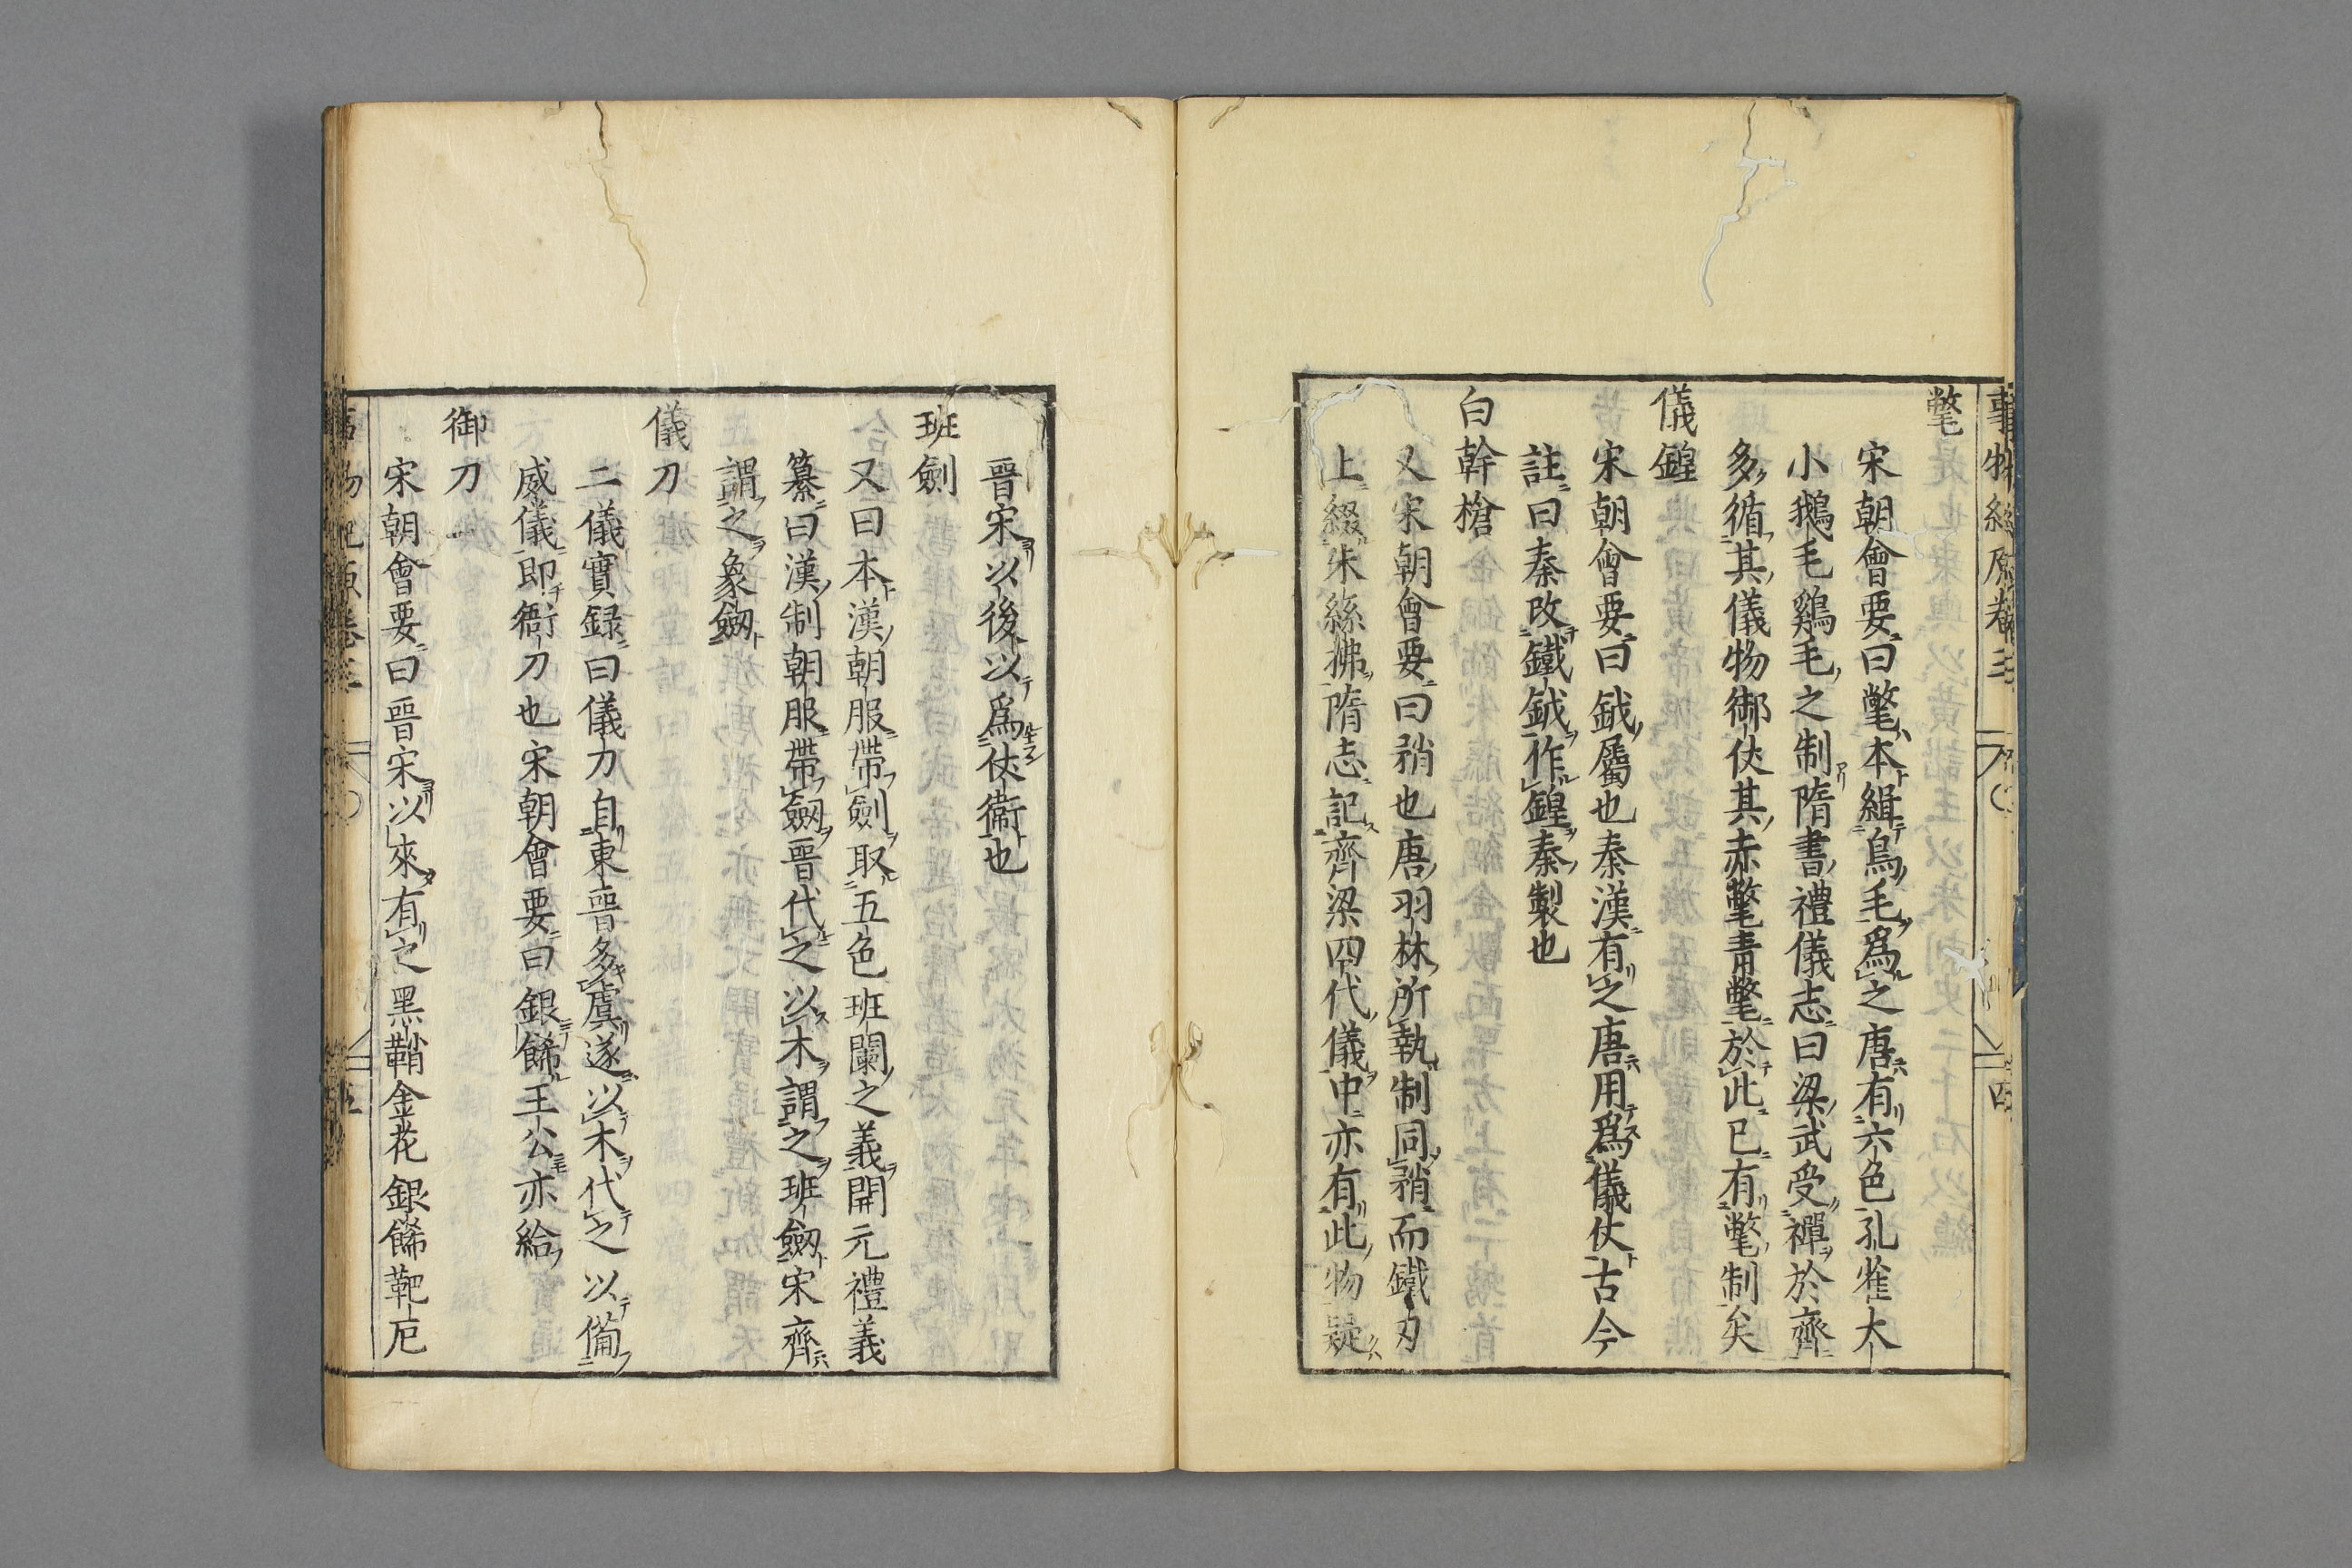 事物紀原卷三 四
氅
宋朝會要曰氅本緝鳥毛爲之唐有六色孔雀大
小鵝毛鷄毛之制隋書禮儀志曰梁武受禪於齊
多循其儀物御仗其赤氅青氅於此已有氅制矣
儀鍠
宋朝會要曰鉞屬也秦漢有之唐用爲儀仗古今
註曰秦改鐵鉞作鍠秦製也
白幹槍
又宋朝會要曰矟也唐羽林所執制同矟而鐵刃
上綴朱絲拂隋志記齊梁四代儀中亦有此物疑
晉宋以後以爲仗衞也
班劍
又曰本漢朝服帶劍取五色班闌之義開元禮義
纂曰漢制朝服帶劔晉代之以木謂之班劔宋齊
謂之象劔
儀刀
二儀實録曰儀刀自東晉多虞遂以木代之以備
威儀即衙刀也宋朝會要曰銀餙王公亦給
御刀
宋朝會要曰晉宋以來有之黑鞘金花銀餙靶卮
事物紀原卷三 五